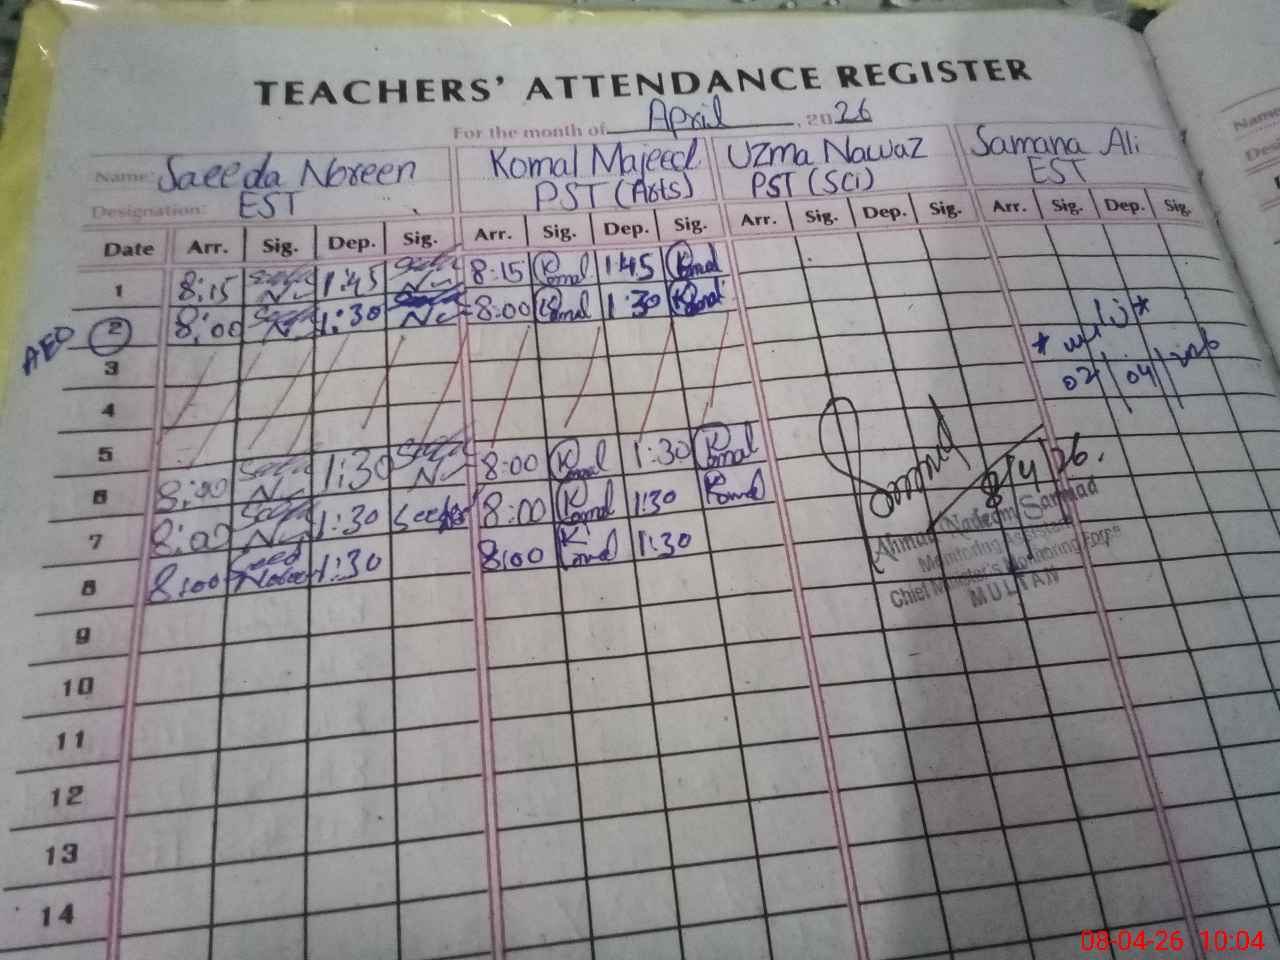 TEACHERS' ATTENDANCE REGISTER
For the month of April, 2026
Name: Saeeda Noreen Komal Majeed Uzma Nawaz Samana Ali
Designation: EST PST (Arts) PST (Sci) EST
Date Arr. Sig. Dep. Sig. Arr. Sig. Dep. Sig. Arr. Sig. Dep. Sig. Arr. Sig. Dep. Sig.
1 8:15 1:45 8:15 Komal 1:45 Komal
AEO 2 8:00 1:30 8:00 Komal 1:30 Komal
3
02/04/2026
4
5
8:00 1:30 8:00 Komal 1:30 Komal
6
8:00 1:30 Saeeda 8:00 Komal 1:30 Komal
7
8:00 Saeed Noreen 1:30 8:00 Komal 1:30
8
8/4/26.
Ahmad Nadeem Sarmad
Monitoring Assistant
Chief Minister's Monitoring Force
MULTAN
9
10
11
12
13
14
Name
08-04-26 10:04